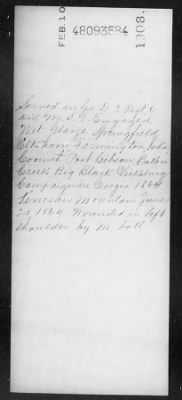 FEB. 10
48093584
1908.
Served in Co. D 3 Regt 6
Div. M. S. G. Engaged,
Wet Glaize Springfield
Elkhorn Farmington, Iuka
Corinth Port Gibson Bakers
Creek Big Black Vicksburg
Campaign in Georgia 1864
Kenesaw Mountain June
20 1864. Wounded in left
shoulder by m ball